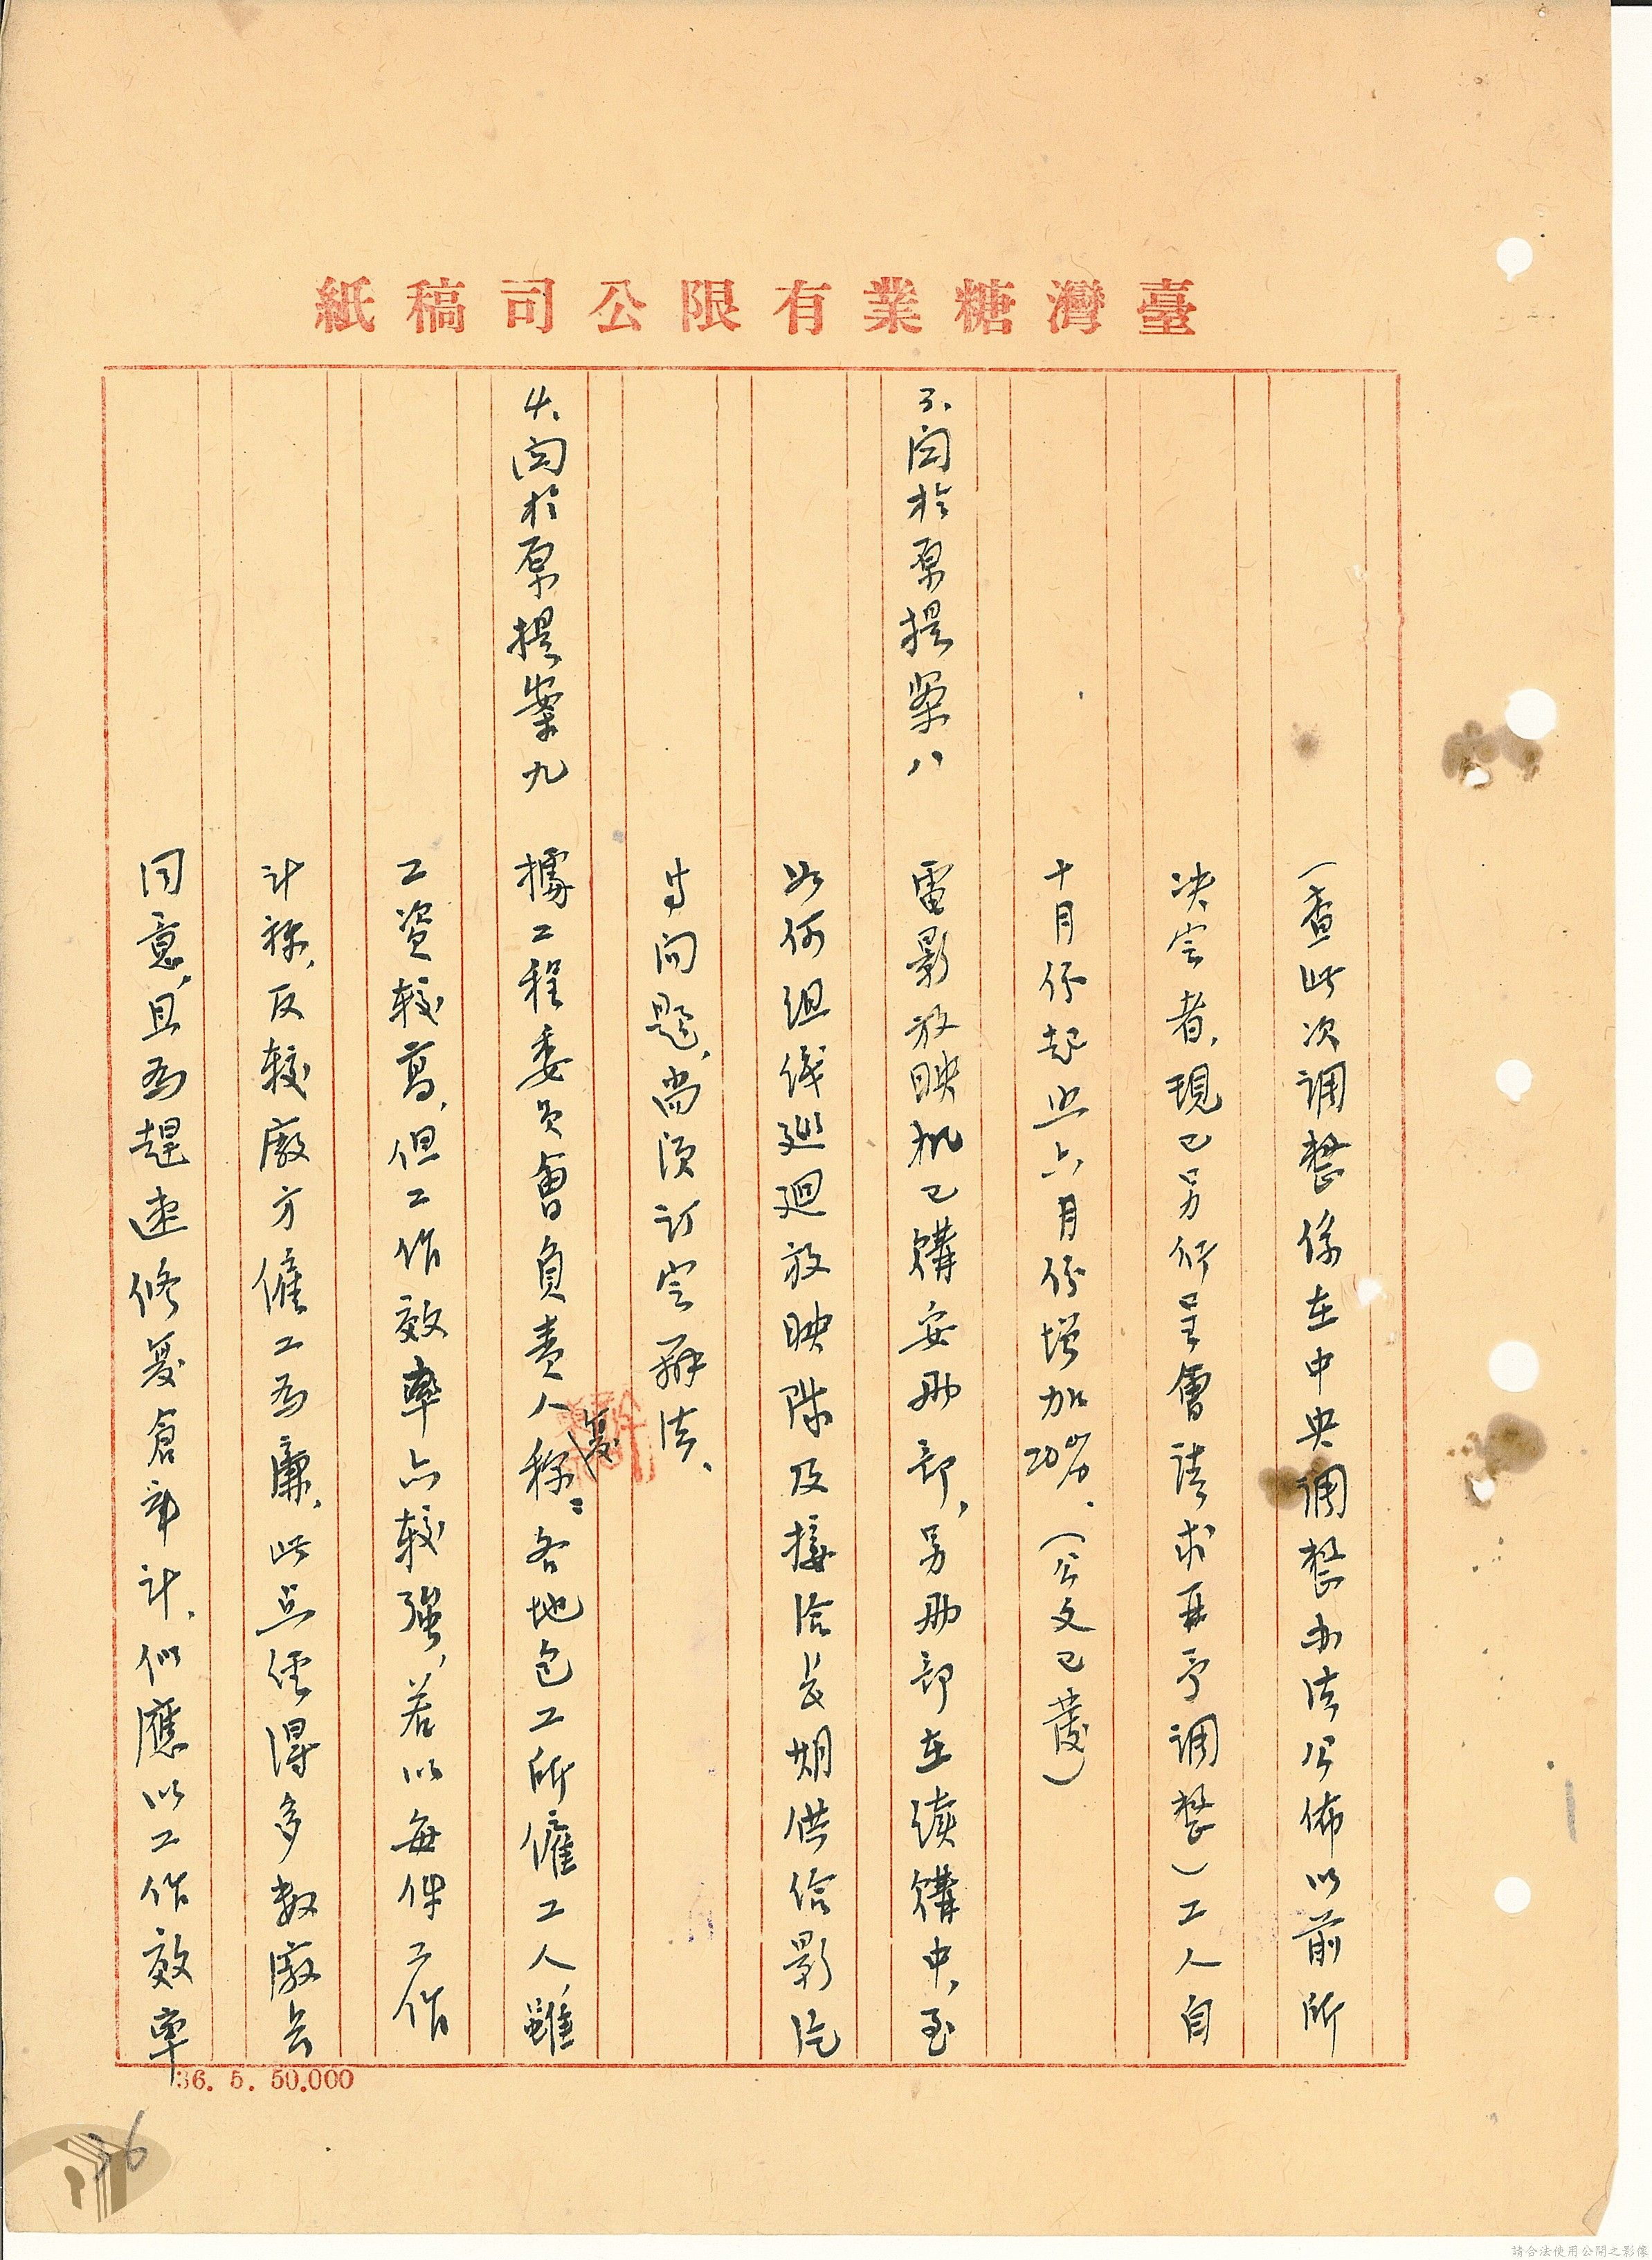 臺灣糖業有限公司稿紙
（查此次调整係在中央调整办法公佈以前所
决定者，現已另行呈會請求再予调整）工人自
十月份起照六月份增加20%。（公文已發）
3、関於原提案八　電影放映机已購妥两部，另两部在續購中，至
如何組織巡迴放映隊及接洽長期供给影片
等问题，尚須订定辦法、
4、関於原提案九　據工程委員會負責人称：各地包工所僱工人，雖
工資較高，但工作效率亦較强，若以每件工作
计称，反較廠方僱工為廉，此点経得多数廠長
同意，且為趕速修复倉庫计，似應以工作效率
复
36. 5. 50.000
36
請合法使用公開之影像